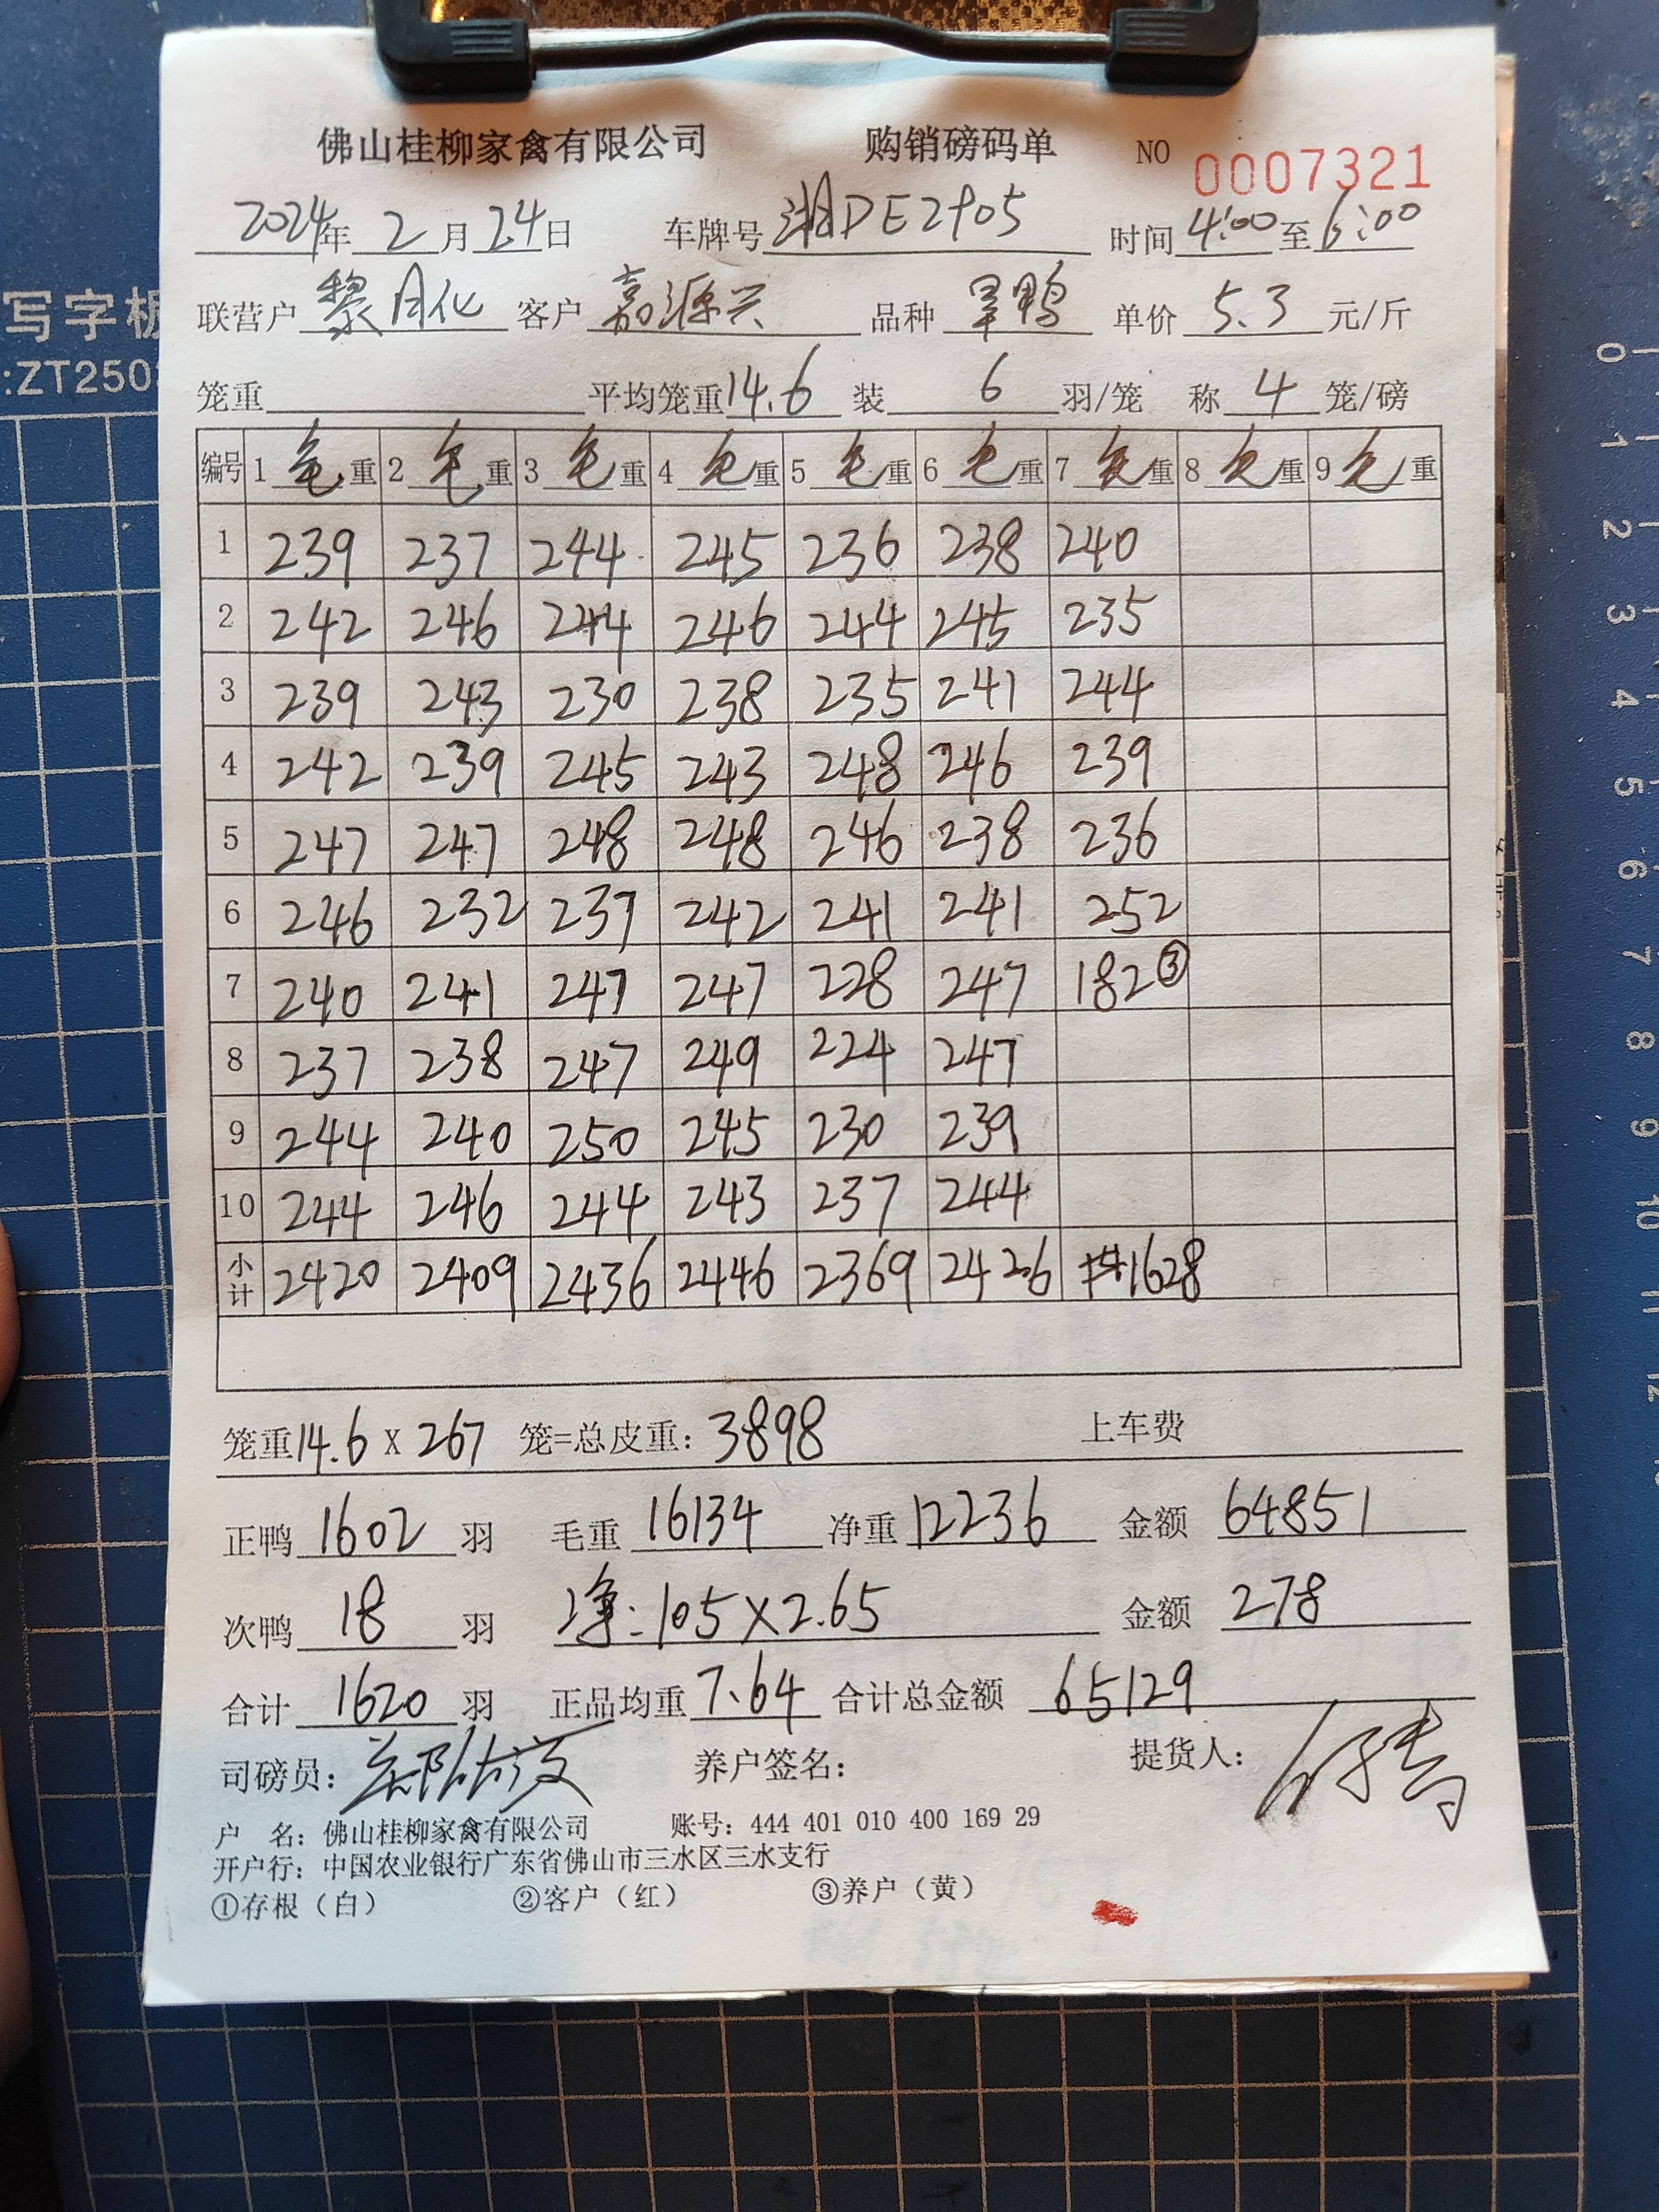 佛山桂柳家禽有限公司 购销磅码单 NO 0007321
2024年 2 月 24 日 车牌号 湘DE2905 时间 4:00 至 6:00
联营户 黎月化 客户 嘉源兴 品种 单价 5.3 元/斤
笼重 平均笼重 14.6 装 6 羽/笼 称 4 笼/磅
编号 1 毛 重 2 毛 重 3 毛 重 4 毛 重 5 毛 重 6 毛 重 7 毛 重 8 毛 重 9 毛 重
1 239 237 244 245 236 238 240
2 242 246 244 246 244 245 235
3 239 243 230 238 235 241 244
4 242 239 245 243 248 246 239
5 247 247 248 248 246 238 236
6 246 232 237 242 241 241 252
7 240 241 247 247 228 247 182③
8 237 238 247 249 224 247
9 244 240 250 245 230 239
10 244 246 244 243 237 244
小计 2420 2409 2436 2446 2369 2426 1628
笼重 14.6 X 267 笼=总皮重: 3898 上车费
正鸭 1602 羽 毛重 16134 净重 12236 金额 64851
次鸭 18 羽 净: 105×2.65 金额 278
合计 1620 羽 正品均重 7.64 合计总金额 65129
司磅员: 养户签名: 提货人:
户 名: 佛山桂柳家禽有限公司 账号: 444 401 010 400 169 29
开户行: 中国农业银行广东省佛山市三水区三水支行
①存根（白） ②客户（红） ③养户（黄）
写字板
:ZT250
0
1
2
3
4
5
6
7
8
9
10
11
12